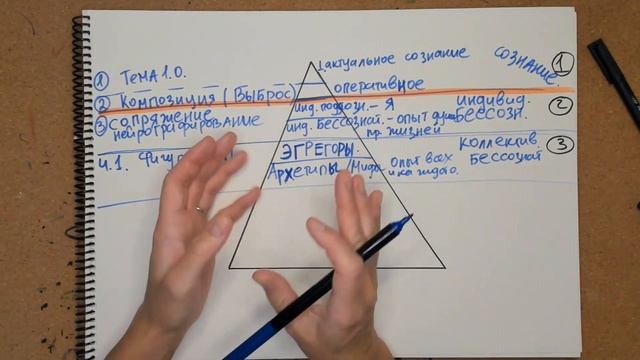 1 Тема 1.0.
2 Композиция (Выброс)
3 сопряжение
нейрографирование
4.1. Фигур
1. актуальное сознание
оперативное
инд. подсозн. - Я
инд. Бессознат. - опыт
жизней
ЭГРЕГОРЫ.
Архетипы опыт всех
и каждого.
СОЗНАНИЕ 1
индивид. 2
Бессозн.
коллектив. 3
Бессознат